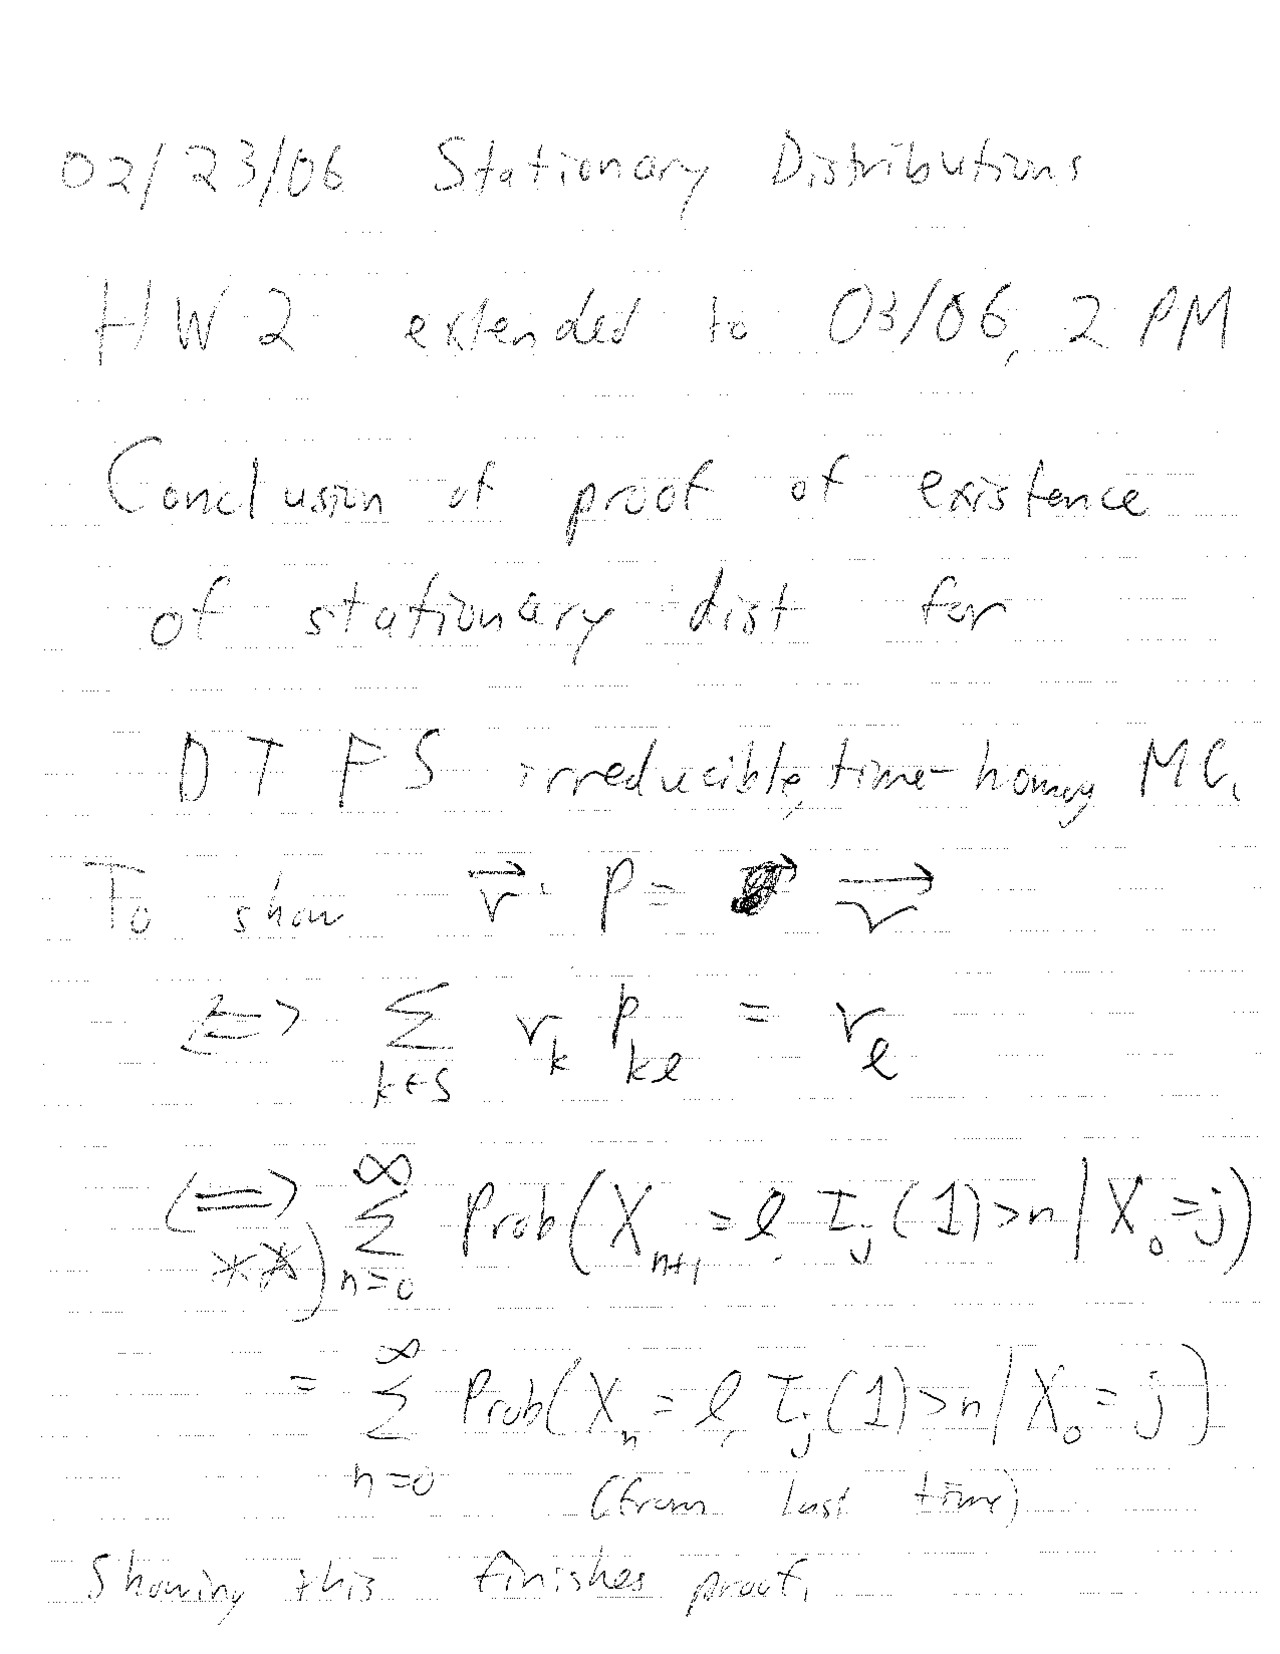 02/23/06 Stationary Distributions
HW2 extended to 03/06, 2 PM
Conclusion of proof of existence
of stationary dist for
DTFS irreducible, time-homog MC.
To show v⃗ · P = v⃗
<=> ∑_{k∈S} v_k P_{kℓ} = v_ℓ
(<=> **) ∑_{n=0}^{∞} Prob(X_{n+1} = ℓ, τ_j(1) > n | X_0 = j)
= ∑_{n=0}^{∞} Prob(X_n = ℓ, τ_j(1) > n | X_0 = j)
(from last time)
Showing this finishes proof.